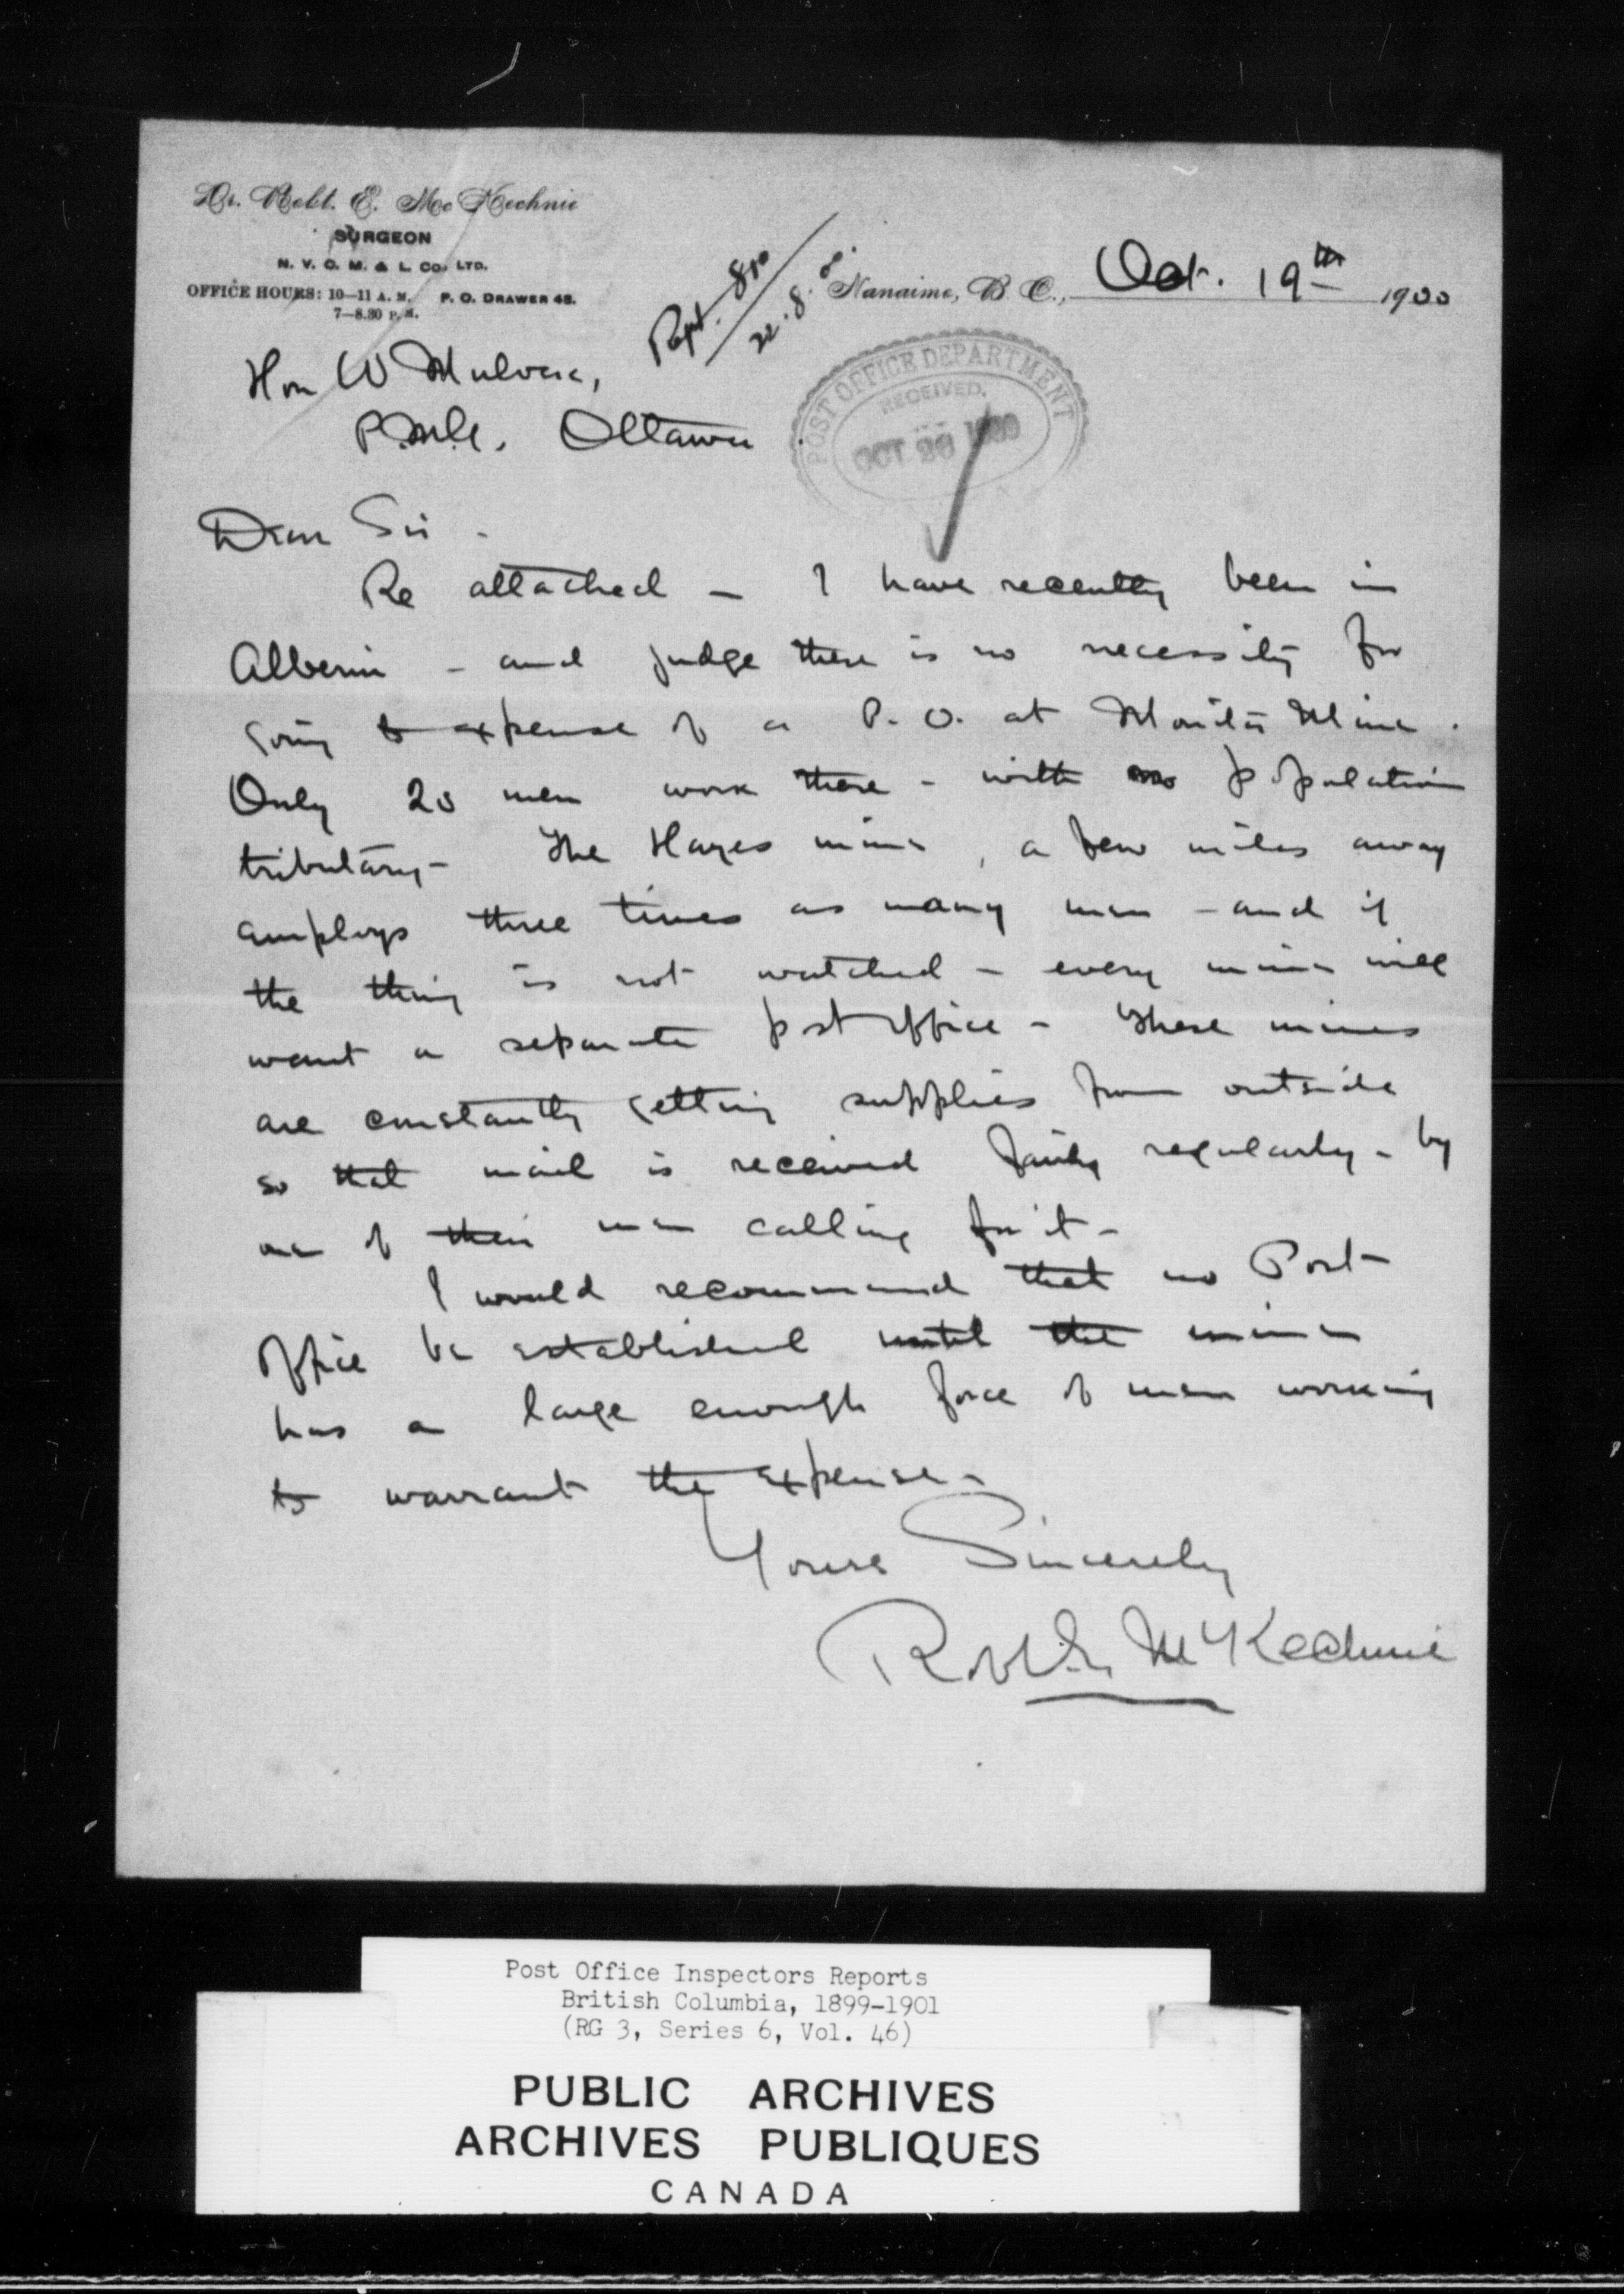 Dr. Robt. E. McKechnie
SURGEON
N. V. C. M. & L. Co., LTD.
OFFICE HOURS: 10—11 A. M. P. O. DRAWER 48.
7—8.30 P. M.
Rept. 810
22.8.00.
Nanaimo, B. C., Oct. 19th 1900
Hon W Mulock,
P.M.G. Ottawa
POST OFFICE DEPARTMENT
RECEIVED.
OCT 26 1900
Dear Sir -
Re attached — I have recently been in
Alberni - and judge there is no necessity for
going to expense of a P. O. at Monitor Mine.
Only 20 men work there - with no population
tributary - The Hayes mine, a few miles away
employs three times as many men - and if
the thing is not watched - every mine will
want a separate post office - These mines
are constantly getting supplies from outside
so that mail is received fairly regularly - by
one of their men calling for it -
I would recommend that no Post
Office be established until the mine
has a large enough force of men working
to warrant the expense -
Yours Sincerely
Robt. E. McKechnie
Post Office Inspectors Reports
British Columbia, 1899-1901
(RG 3, Series 6, Vol. 46)
PUBLIC ARCHIVES
ARCHIVES PUBLIQUES
CANADA